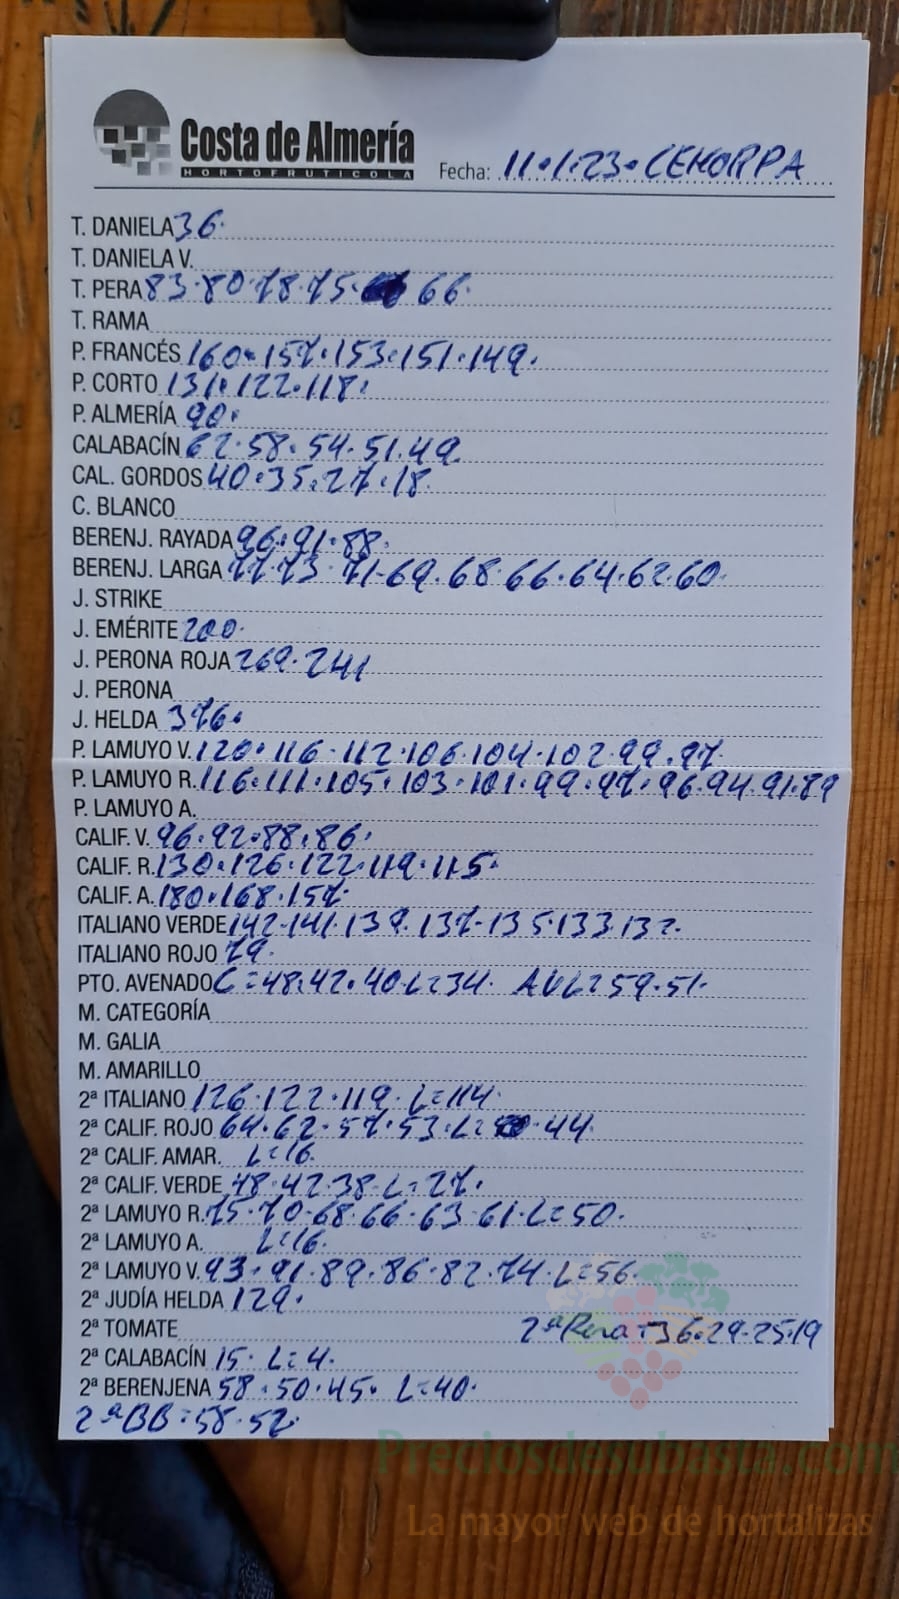 Costa de Almería
HORTOFRUTICOLA
Fecha: 11.1.23. CEHORPA
T. DANIELA 36.
T. DANIELA V.
T. PERA 83.80.78.75. 66.
T. RAMA
P. FRANCÉS 160.157.153.151.149.
P. CORTO 131.122.118.
P. ALMERÍA 90.
CALABACÍN 62.58.54.51.49.
CAL. GORDOS 40.35.27.18.
C. BLANCO
BERENJ. RAYADA 96.91.88.
BERENJ. LARGA 77.73.71-69.68.66.64.62.60.
J. STRIKE
J. EMÉRITE 200.
J. PERONA ROJA 269.241
J. PERONA
J. HELDA 376.
P. LAMUYO V. 120.116.112.106.104.102.99.97.
P. LAMUYO R. 116.111.105.103.101.99.97.96.94.91.89
P. LAMUYO A.
CALIF. V. 96.92.88.86.
CALIF. R. 130.126.122.119.115.
CALIF. A. 180.168.157.
ITALIANO VERDE 142.141.139.137-135.133.132.
ITALIANO ROJO 79.
PTO. AVENADO C=48.42.40.L=34. AVL=59.51.
M. CATEGORÍA
M. GALIA
M. AMARILLO
2ª ITALIANO 126.122.119. L=114.
2ª CALIF. ROJO 64.62.57.53.L= .44.
2ª CALIF. AMAR. L=16.
2ª CALIF. VERDE 48.42.38.L=27.
2ª LAMUYO R. 75.70-68.66.63.61.L=50.
2ª LAMUYO A. L=16.
2ª LAMUYO V. 93.91.89.86.82.74.L=56.
2ª JUDÍA HELDA 129.
2ª TOMATE 2ª Pera =36.29.25.19
2ª CALABACÍN 15. L=4.
2ª BERENJENA 58.50.45. L=40.
2ªBB=58.52.
Preciosdesubasta.com
La mayor web de hortalizas